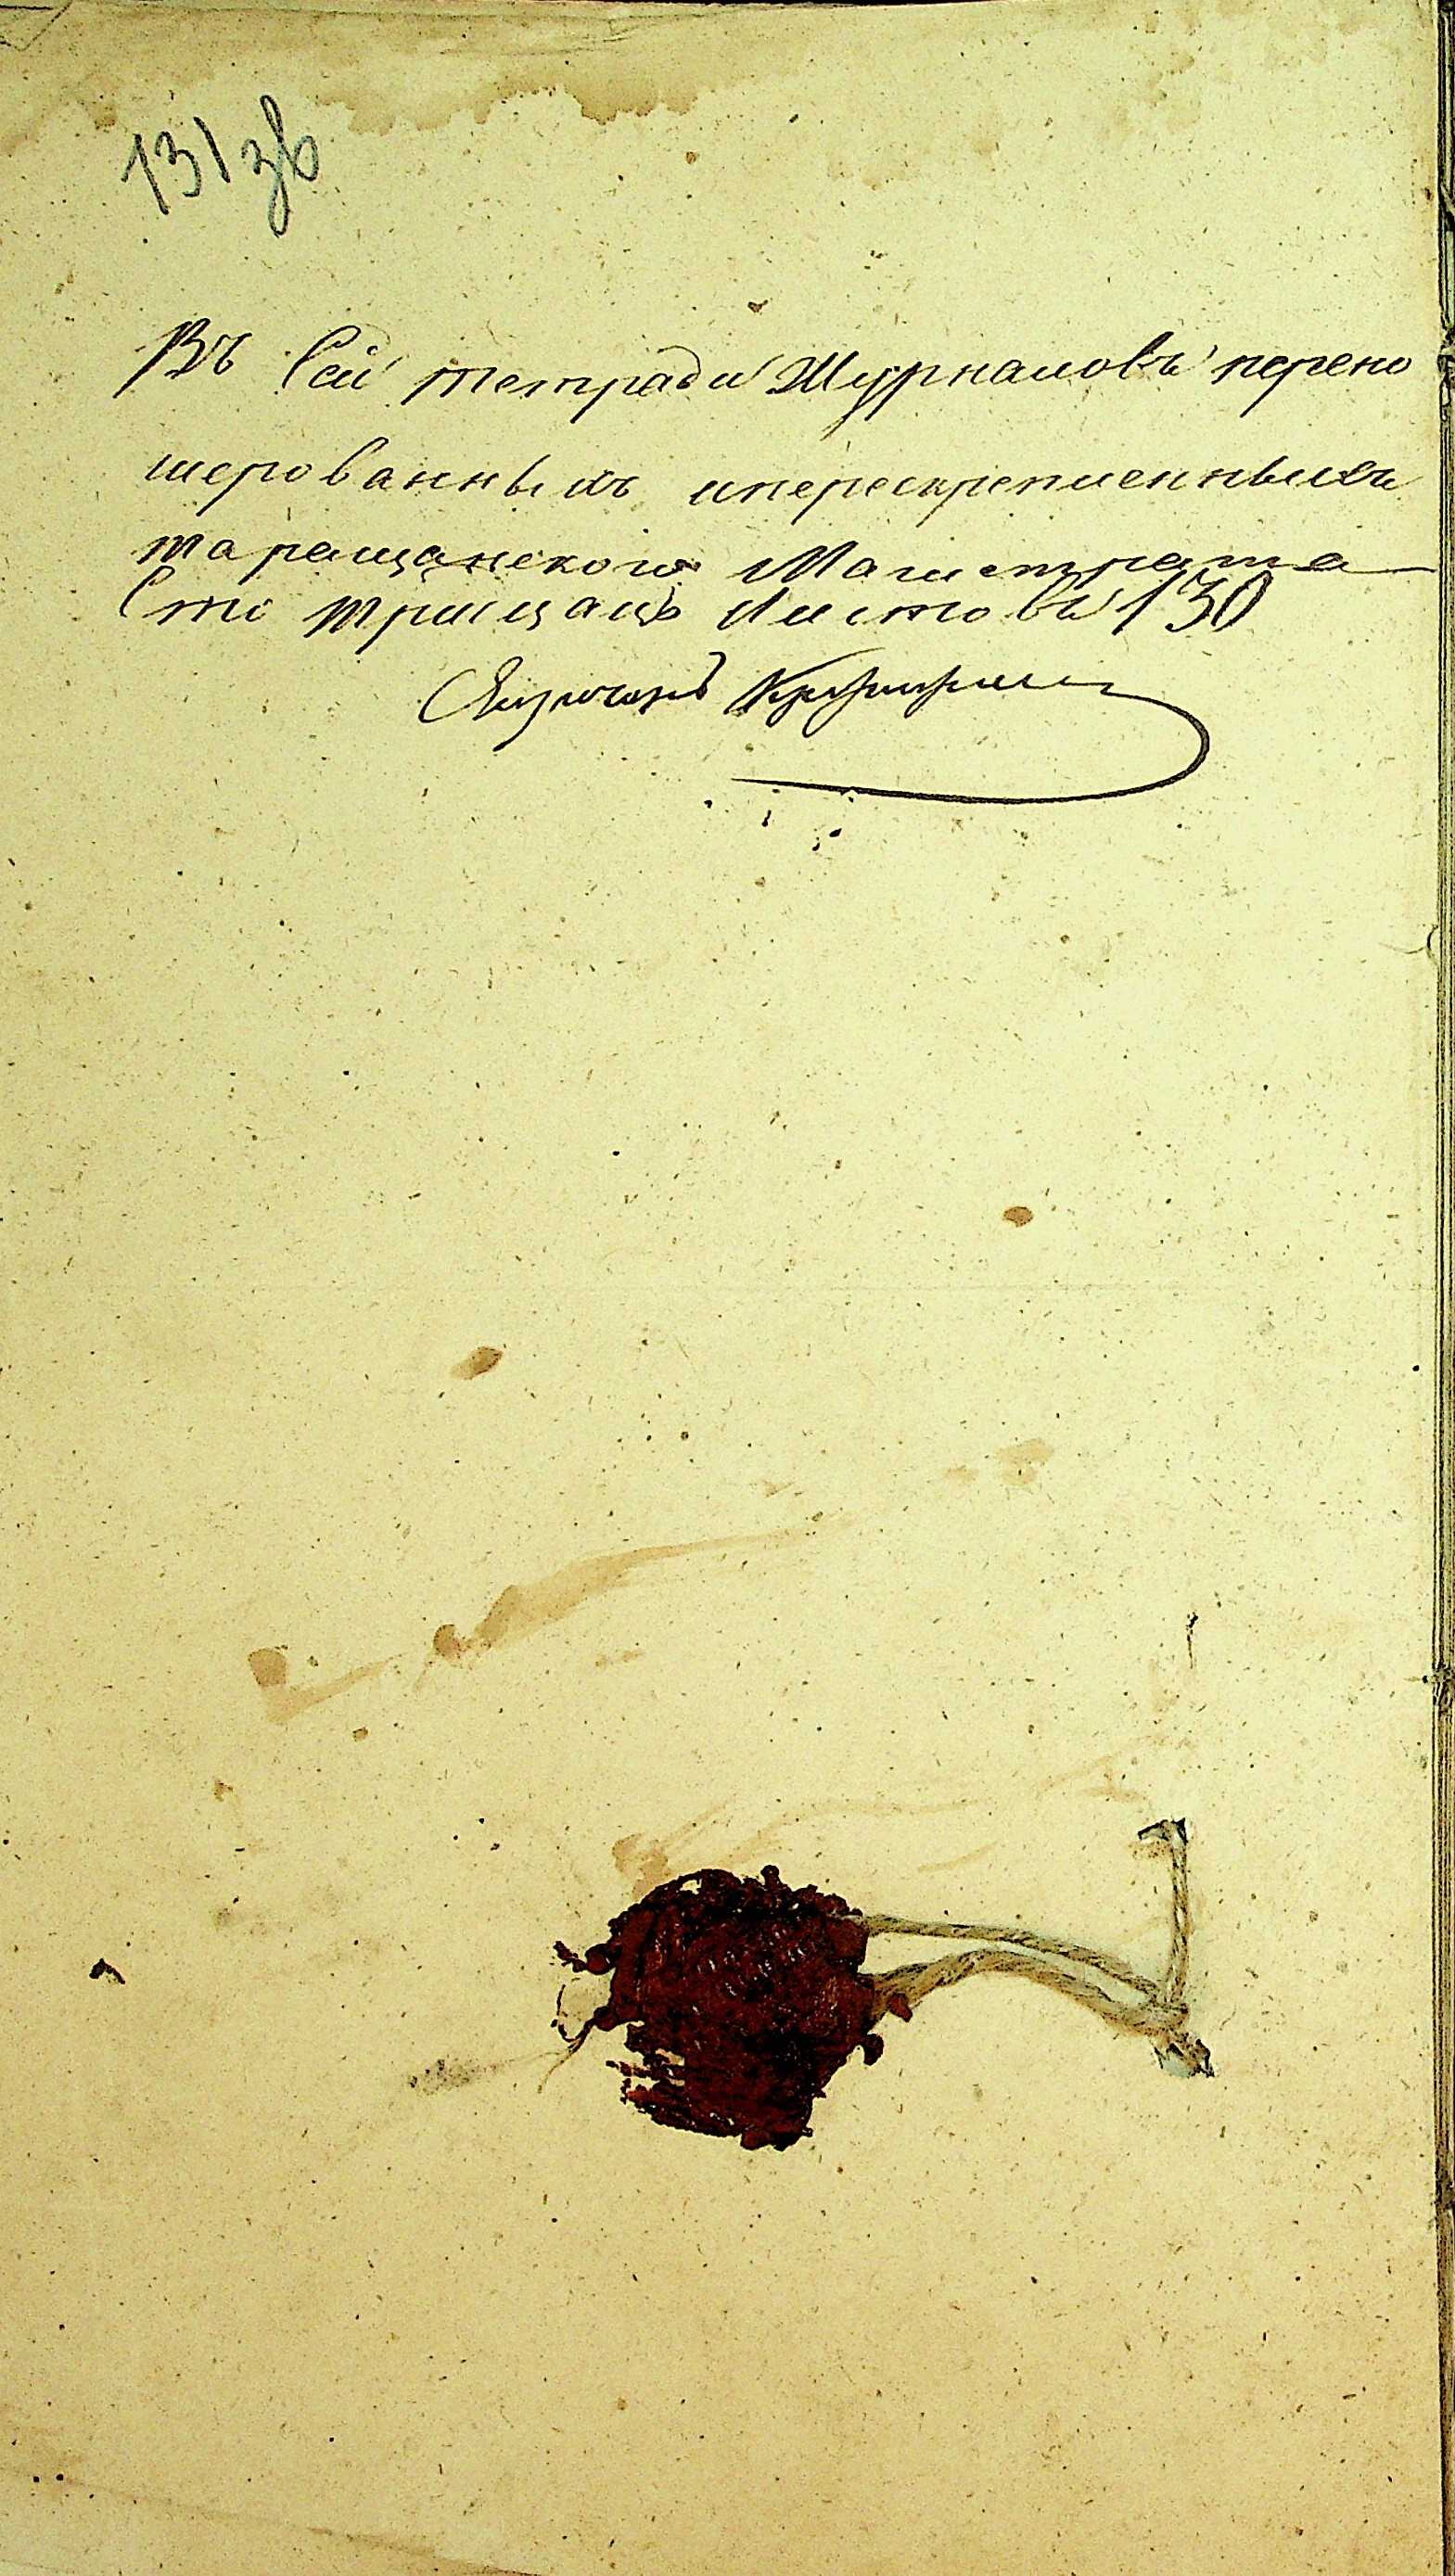 131 зв
Въ Сей тетради Журналовъ перено
мерованныхъ иперескрепленныхъ
таращанского Магистрата
Сто трицать листовъ 130